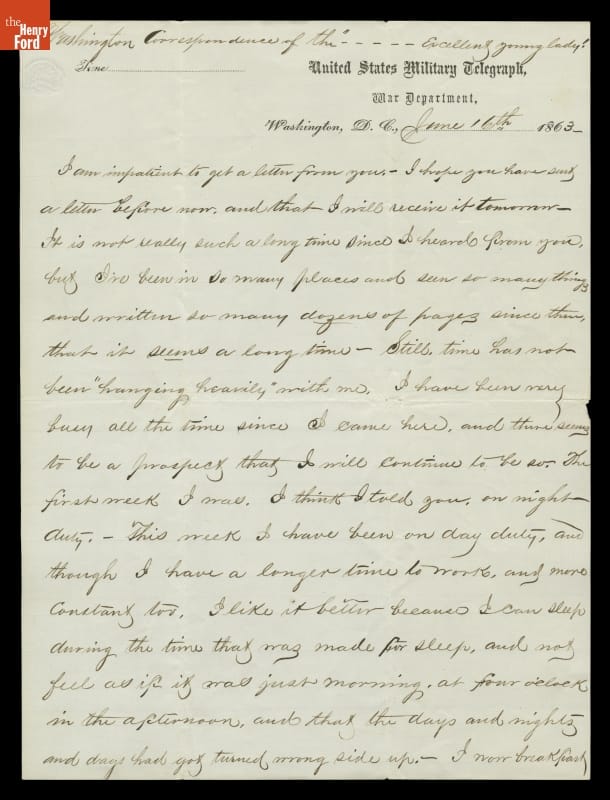 the
Henry
Ford
Washington Correspondence of the " - - - - - Excellent young lady!
Time
United States Military Telegraph,
War Department,
Washington, D. C., June 16th 1863-
I am impatient to get a letter from you. - I hope you have sent
a letter before now, and that I will receive it tomorrow -
It is not really such a long time since I heard from you,
but I've been in so many places and seen so many things
and written so many dozens of pages since then,
that it seems a long time - Still, time has not
been "hanging heavily" with me. I have been very
busy all the time since I came here, and there seems
to be a prospect that I will continue to be so. The
first week I was, I think I told you, on night
duty. - This week I have been on day duty, and
though I have a longer time to work, and more
constant too, I like it better because I can sleep
during the time that was made for sleep, and not
feel as if it was just morning, at four o'clock
in the afternoon, and that the days and nights
and days had got turned wrong side up. - I now breakfast